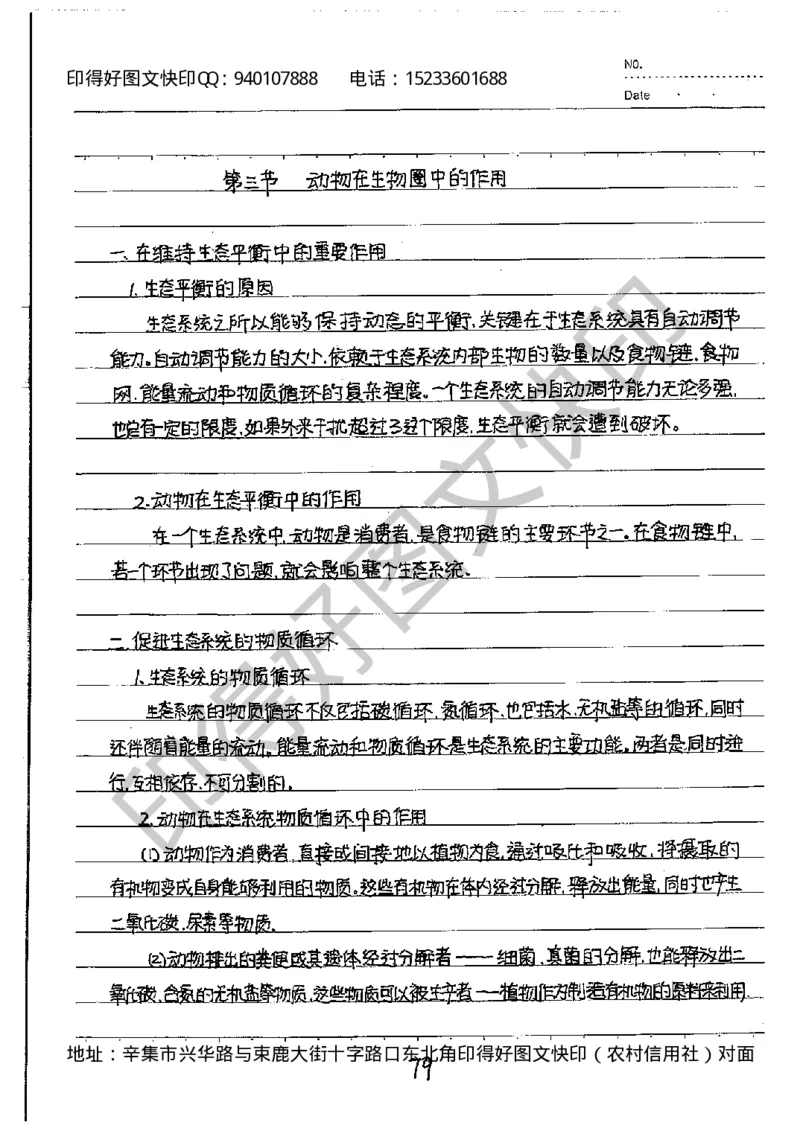 印得好图文快印QQ：940107888 电话：15233601688
NO.
Date
第三节 动物在生物圈中的作用
一、在维持生态平衡中的重要作用
1.生态平衡的原因
生态系统之所以能够保持动态的平衡,关键在于生态系统具有自动调节
能力。自动调节能力的大小,依赖于生态系统内部生物的数量以及食物链,食物
网,能量流动和物质循环的复杂程度。一个生态系统的自动调节能力无论多强,
也总有一定的限度,如果外来干扰超过了这个限度,生态平衡就会遭到破坏。
2.动物在生态平衡中的作用
在一个生态系统中,动物是消费者,是食物链的主要环节之一。在食物链中,
若一个环节出现了问题,就会影响整个生态系统.
二.促进生态系统的物质循环
1.生态系统的物质循环
生态系统的物质循环不仅包括碳循环、氮循环,也包括水.无机盐等的循环,同时
还伴随着能量的流动。能量流动和物质循环是生态系统的主要功能。两者是同时进
行,互相依存,不可分割的。
2.动物在生态系统物质循环中的作用
(1)动物作为消费者,直接或间接地以植物为食,通过吸比和吸收,将摄取的
有机物变成自身能够利用的物质。这些有机物在体内经过分解,释放出能量,同时也产生
二氧化碳.尿素等物质.
(2)动物排出的粪便或其遗体经过分解者——细菌.真菌的分解,也能释放出二
氧化碳,含氮的无机盐等物质,这些物质可以被生产者——植物作为制造有机物的原料来利用
地址：辛集市兴华路与束鹿大街十字路口东北角印得好图文快印（农村信用社）对面
79
印得好图文快印